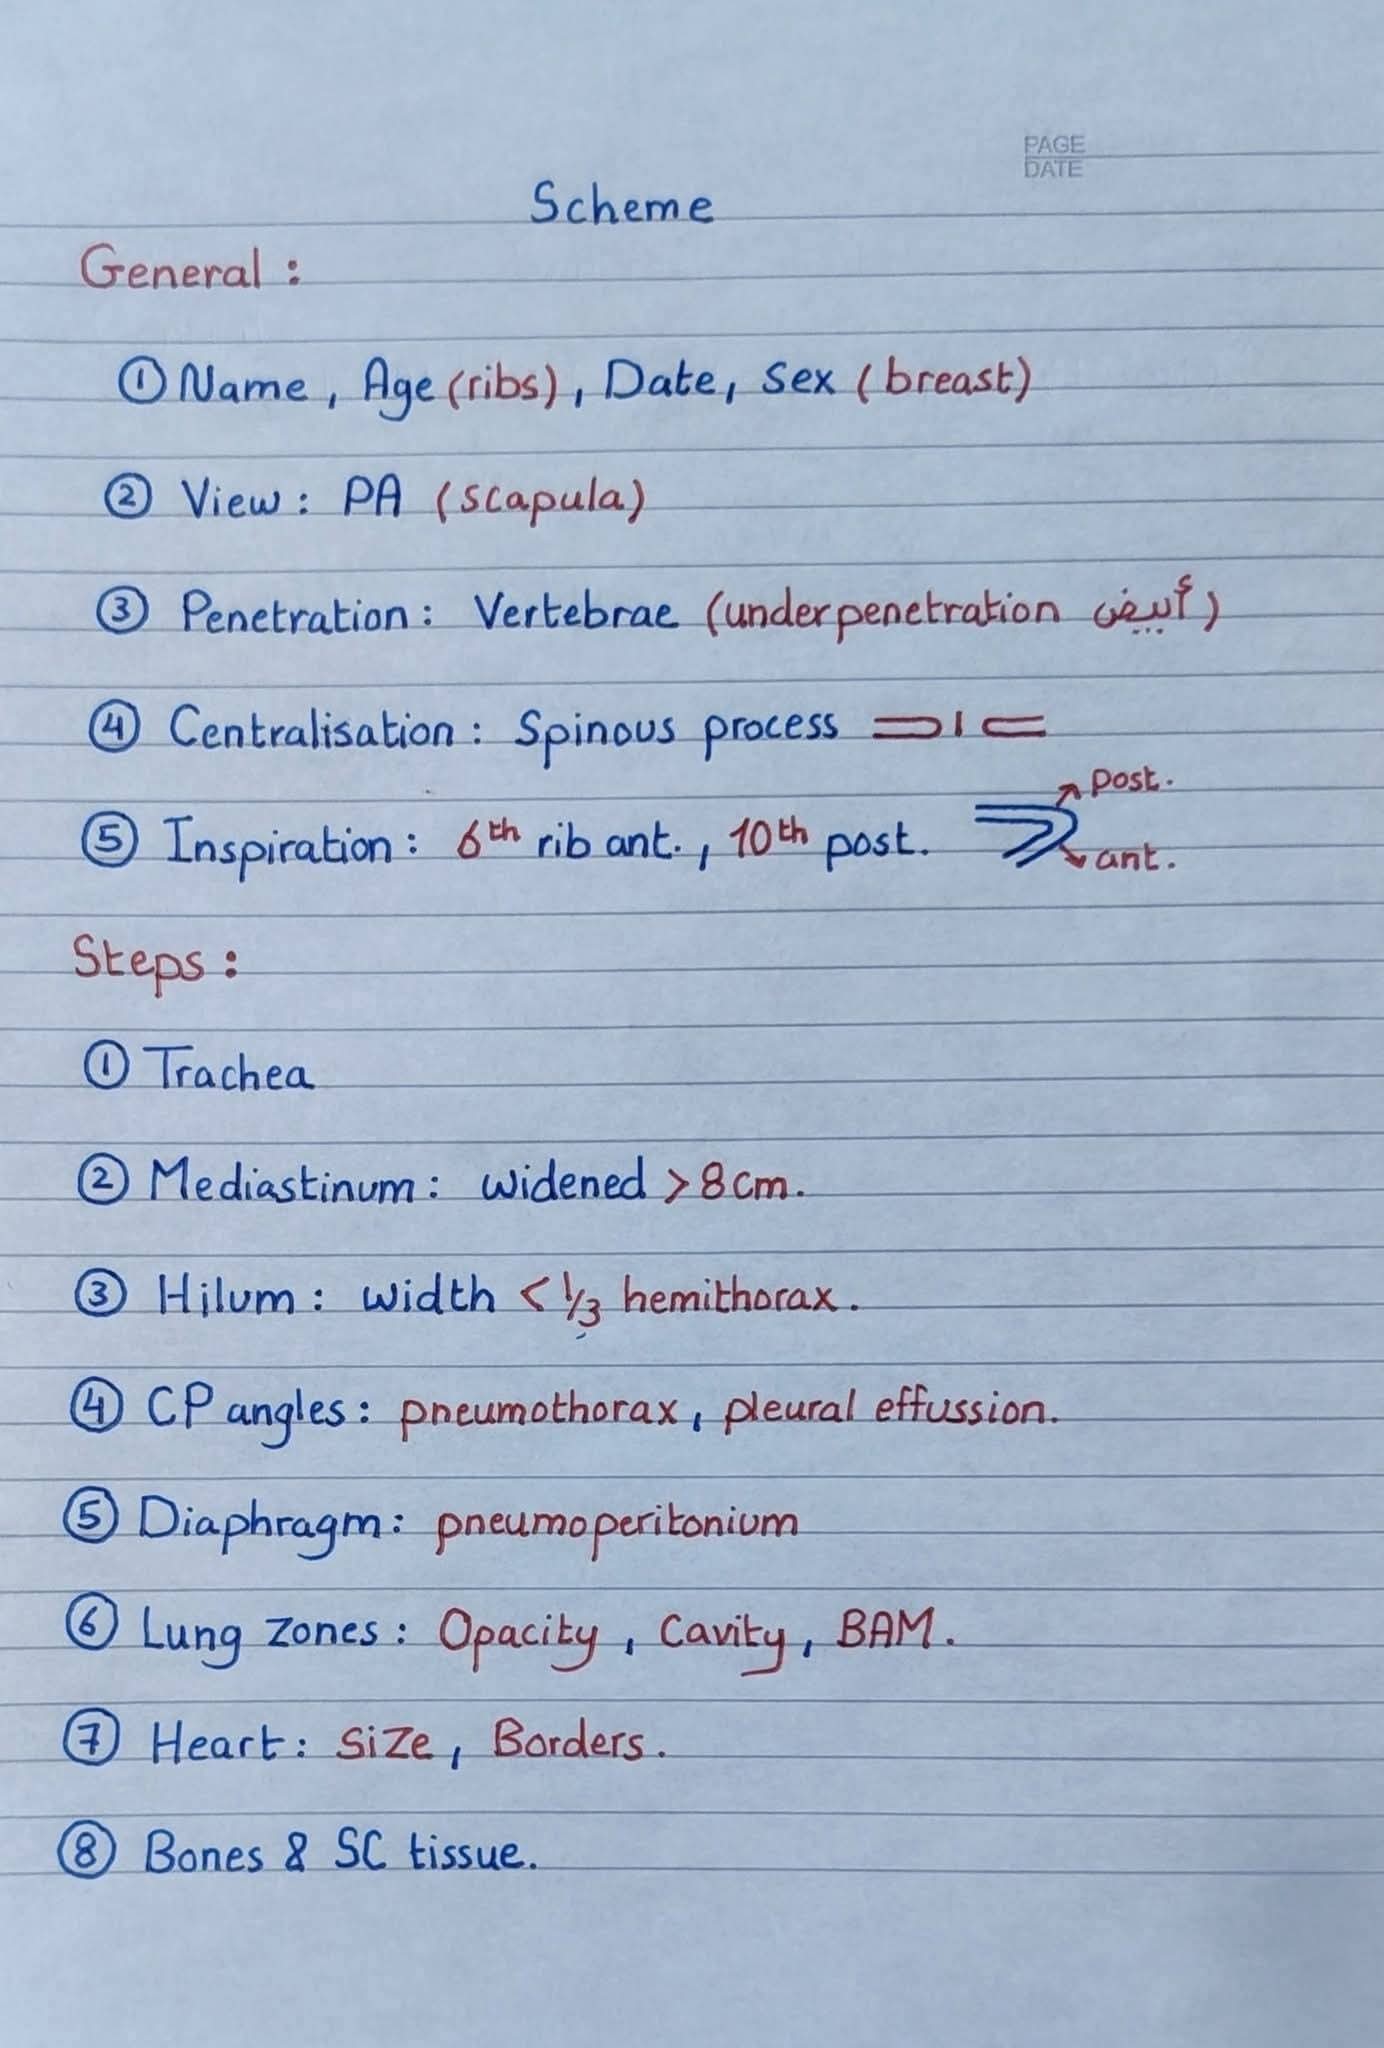 PAGE
DATE
Scheme
General :
① Name , Age (ribs) , Date, Sex (breast)
② View : PA (scapula)
③ Penetration : Vertebrae (underpenetration أبيض)
④ Centralisation : Spinous process
post.
⑤ Inspiration : 6th rib ant. , 10th post.
ant.
Steps :
① Trachea
② Mediastinum : widened > 8 cm.
③ Hilum : width < 1/3 hemithorax.
④ CP angles : pneumothorax , pleural effussion.
⑤ Diaphragm : pneumoperitonium
⑥ Lung zones : Opacity , Cavity , BAM.
⑦ Heart : Size , Borders.
⑧ Bones & SC tissue.